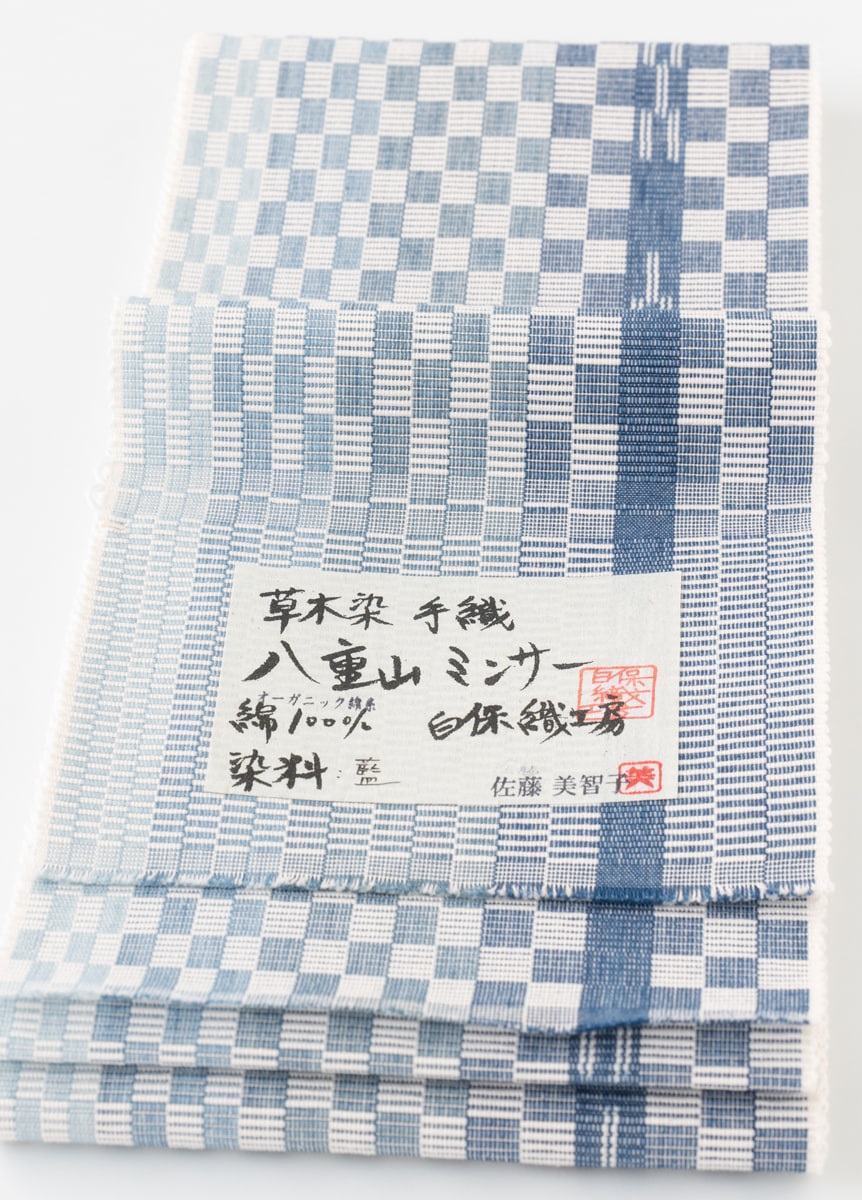 草木染 手織
八重山 ミンサー
オーガニック綿糸
綿100% 白保織工房
染料:藍
佐藤 美智子
美